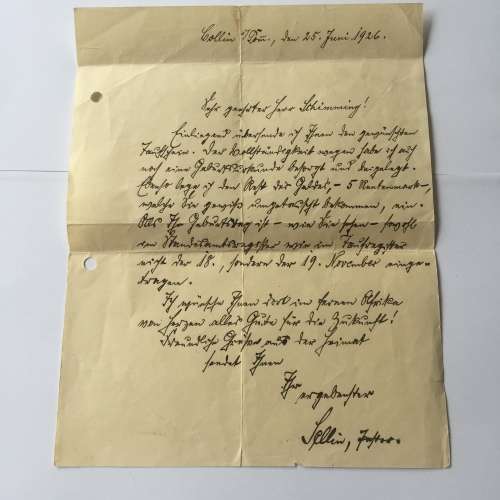 Collin i/Pom., den 25. Juni 1926.
Sehr geehrter Herr Schimming!
Einliegend übersende ich Ihnen den gewünschten
Taufschein. Der Vollständigkeit wegen habe ich auch
noch eine Geburtsurkunde besorgt und beigelegt.
Ebenso lege ich den Rest des Geldes, – 5 Rentenmark –,
welche Sie gewiß umgetauscht bekommen, ein.
Als Ihr Geburtstag ist – wie Sie sehen – sowohl
im Standesamtsregister wie im Taufregister
nicht der 18., sondern der 19. November einge-
tragen.
Ich wünsche Ihnen dort im fernen Afrika
von Herzen alles Gute für die Zukunft!
Freundliche Grüße aus der Heimat
sendet Ihnen
Ihr
ergebenster
Sellin, Pastor.